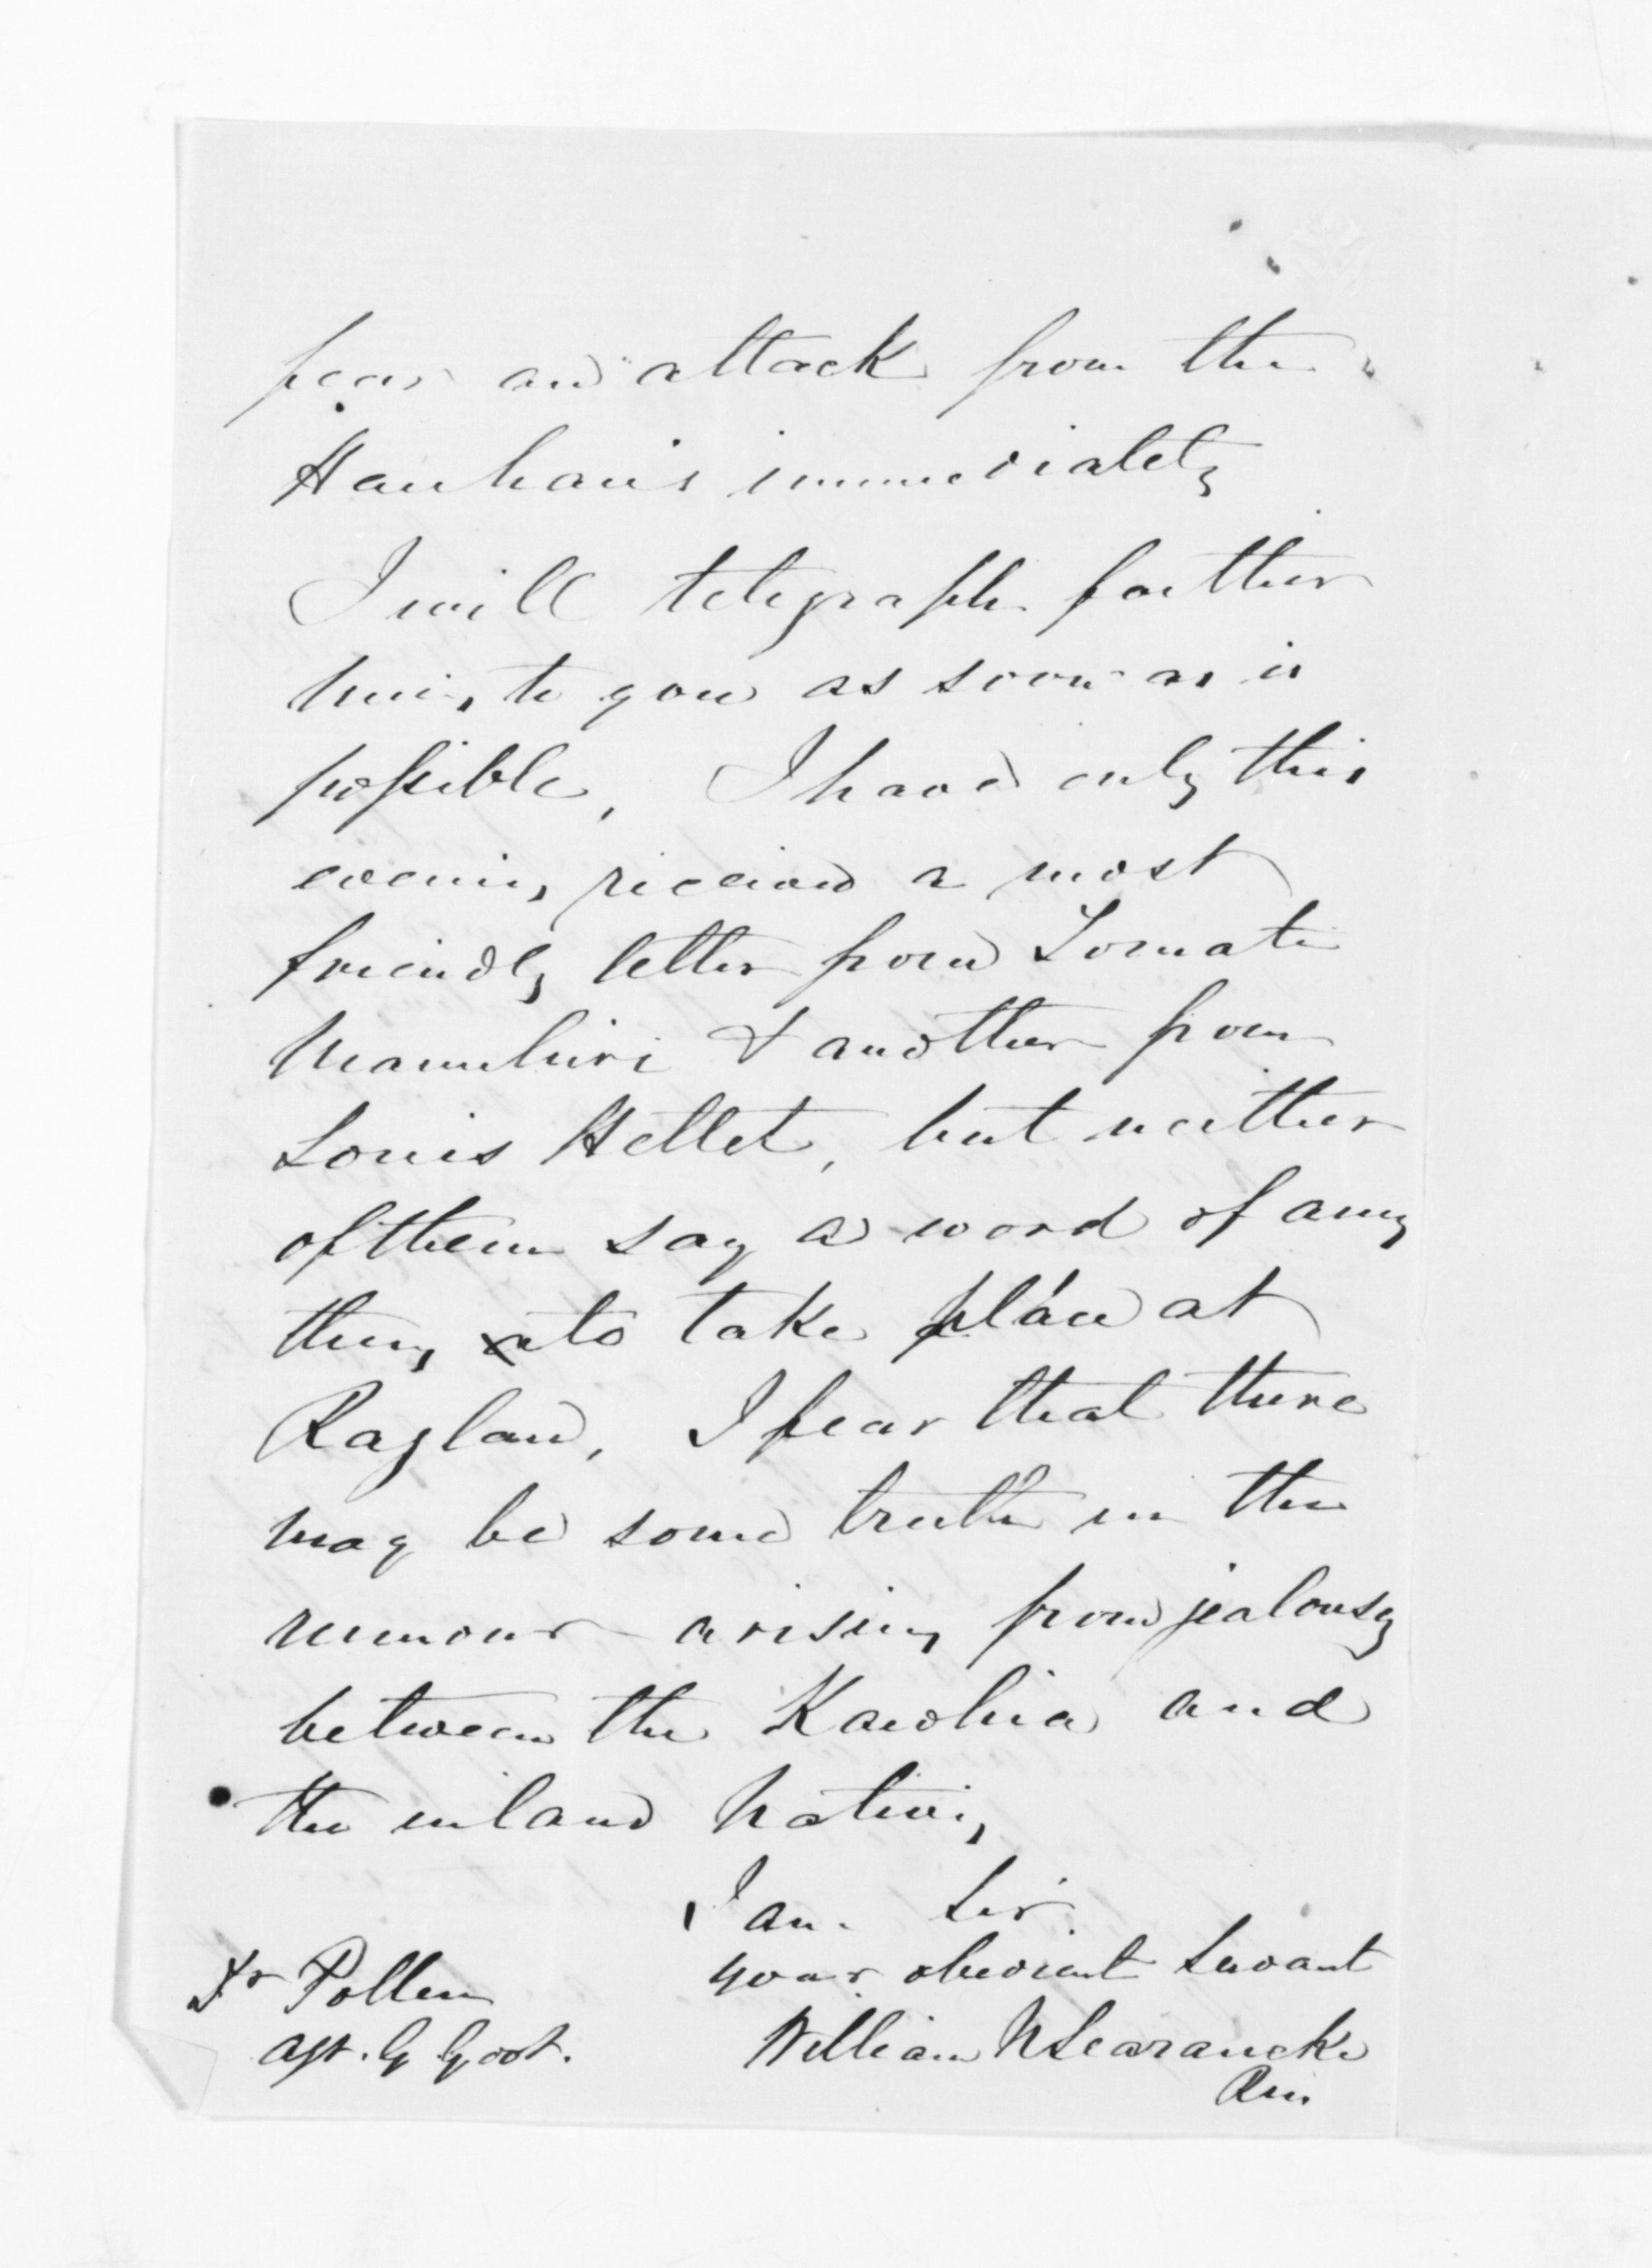 fear an attack from the
Hauhau's immediately
I will telegraph further
news to you as soon as is
possible, I have only this
evening received a most
friendly letter from Tomati
Manuhiri & another from
Louis Hettet, but neither
of them say a word of any
thing to take place at
Raglan, I fear that there
may be some truth in the
rumour arising from jealousy
between the Kawhia and
the inland Natives
I am Sir
your obedient Servant
William N Searancke
RM
Dr Pollen
Agt. G Govt.